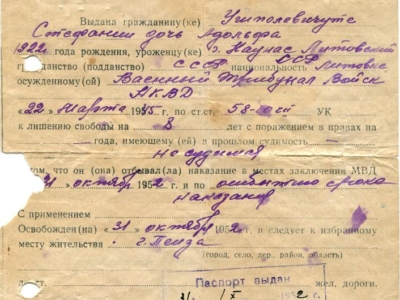 Выдана гражданину(ке) Ушполевичуте
Стефании дочь Адольфа
1922 года рождения, уроженцу(ке) г. Каунас Литовской ССР
гражданство (подданство) СССР национальность
осужденному(ой) Военный Трибунал Войск
НКВД
"22" марта 1945 по ст.ст. 58- УК
к лишению свободы на 8 лет с поражением в правах на
года, имеющему (ей) в прошлом судимость
не судимая
том, что он (она) отбывал(ла) наказание в местах заключении МВД
31 октября 195 2 и по отбытию срока
наказания
С применением
Освобожден(на) "31" октября 195 2 и следует к избранному
месту жительства г. Пенза
(город, село, дер., район, область)
жел. дороги.
Паспорт выдан